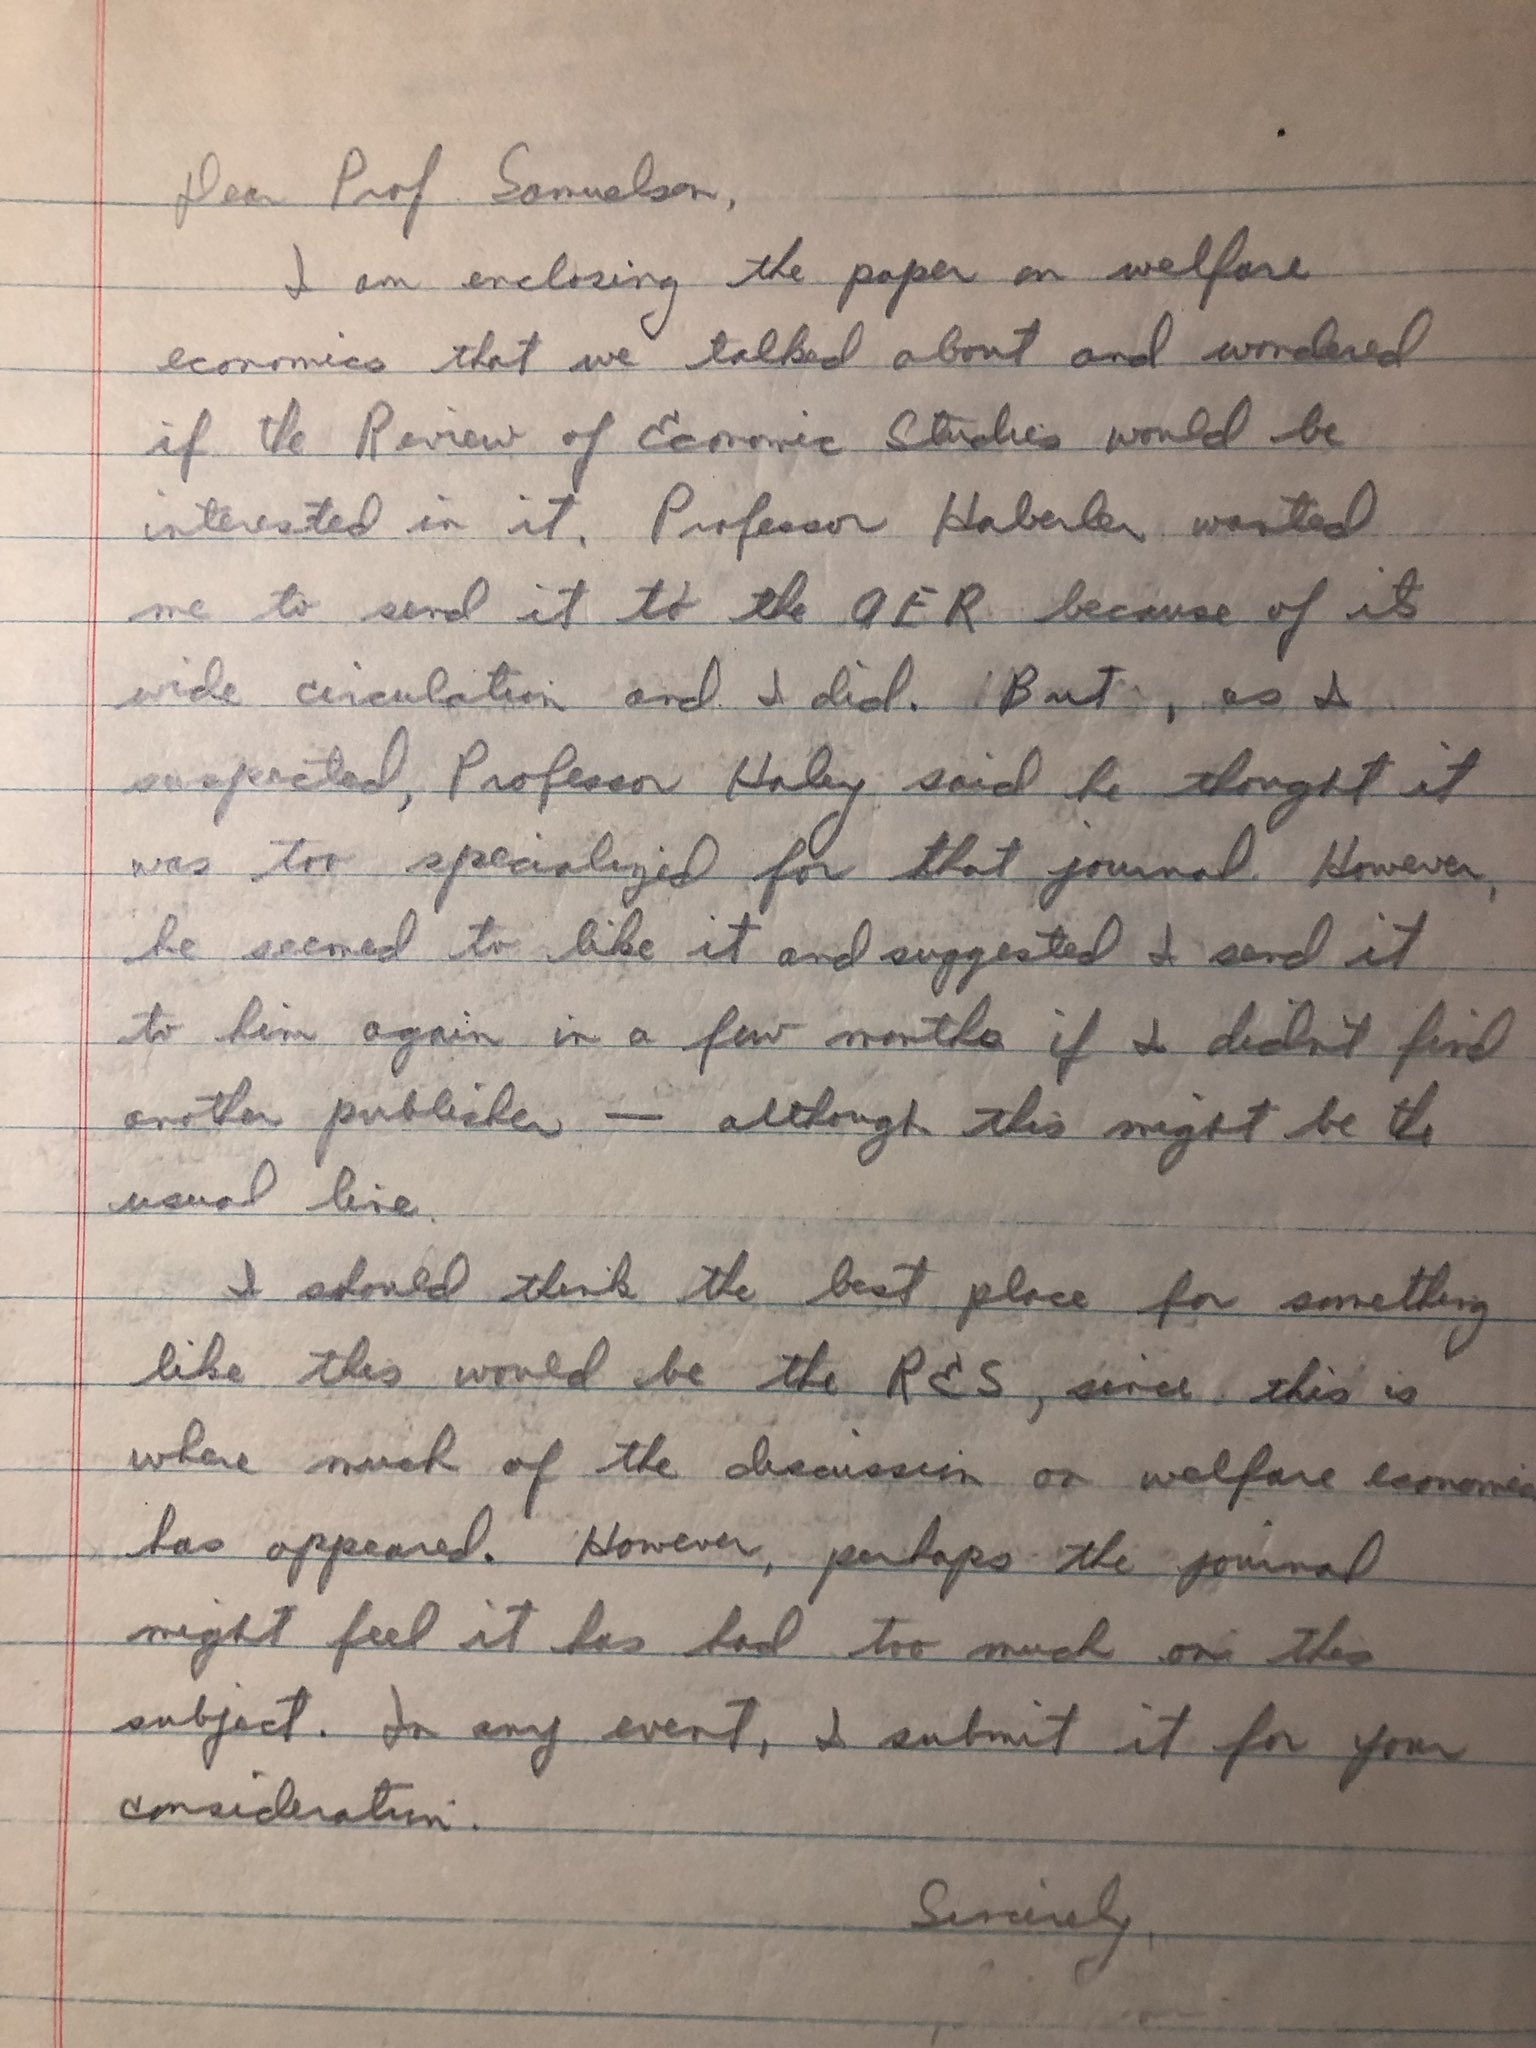 Dear Prof Samuelson,
I am enclosing the paper on welfare
economics that we talked about and wondered
if the Review of Economic Studies would be
interested in it. Professor Haberler wanted
me to send it to the AER because of its
wide circulation and I did. But, as I
suspected, Professor Haley said he thought it
was too specialized for that journal. However,
he seemed to like it and suggested I send it
to him again in a few months if I didn't find
another publisher — although this might be the
usual line.
I should think the best place for something
like this would be the RES, since this is
where much of the discussion on welfare economics
has appeared. However, perhaps the journal
might feel it has had too much on this
subject. In any event, I submit it for your
consideration.
Sincerely,